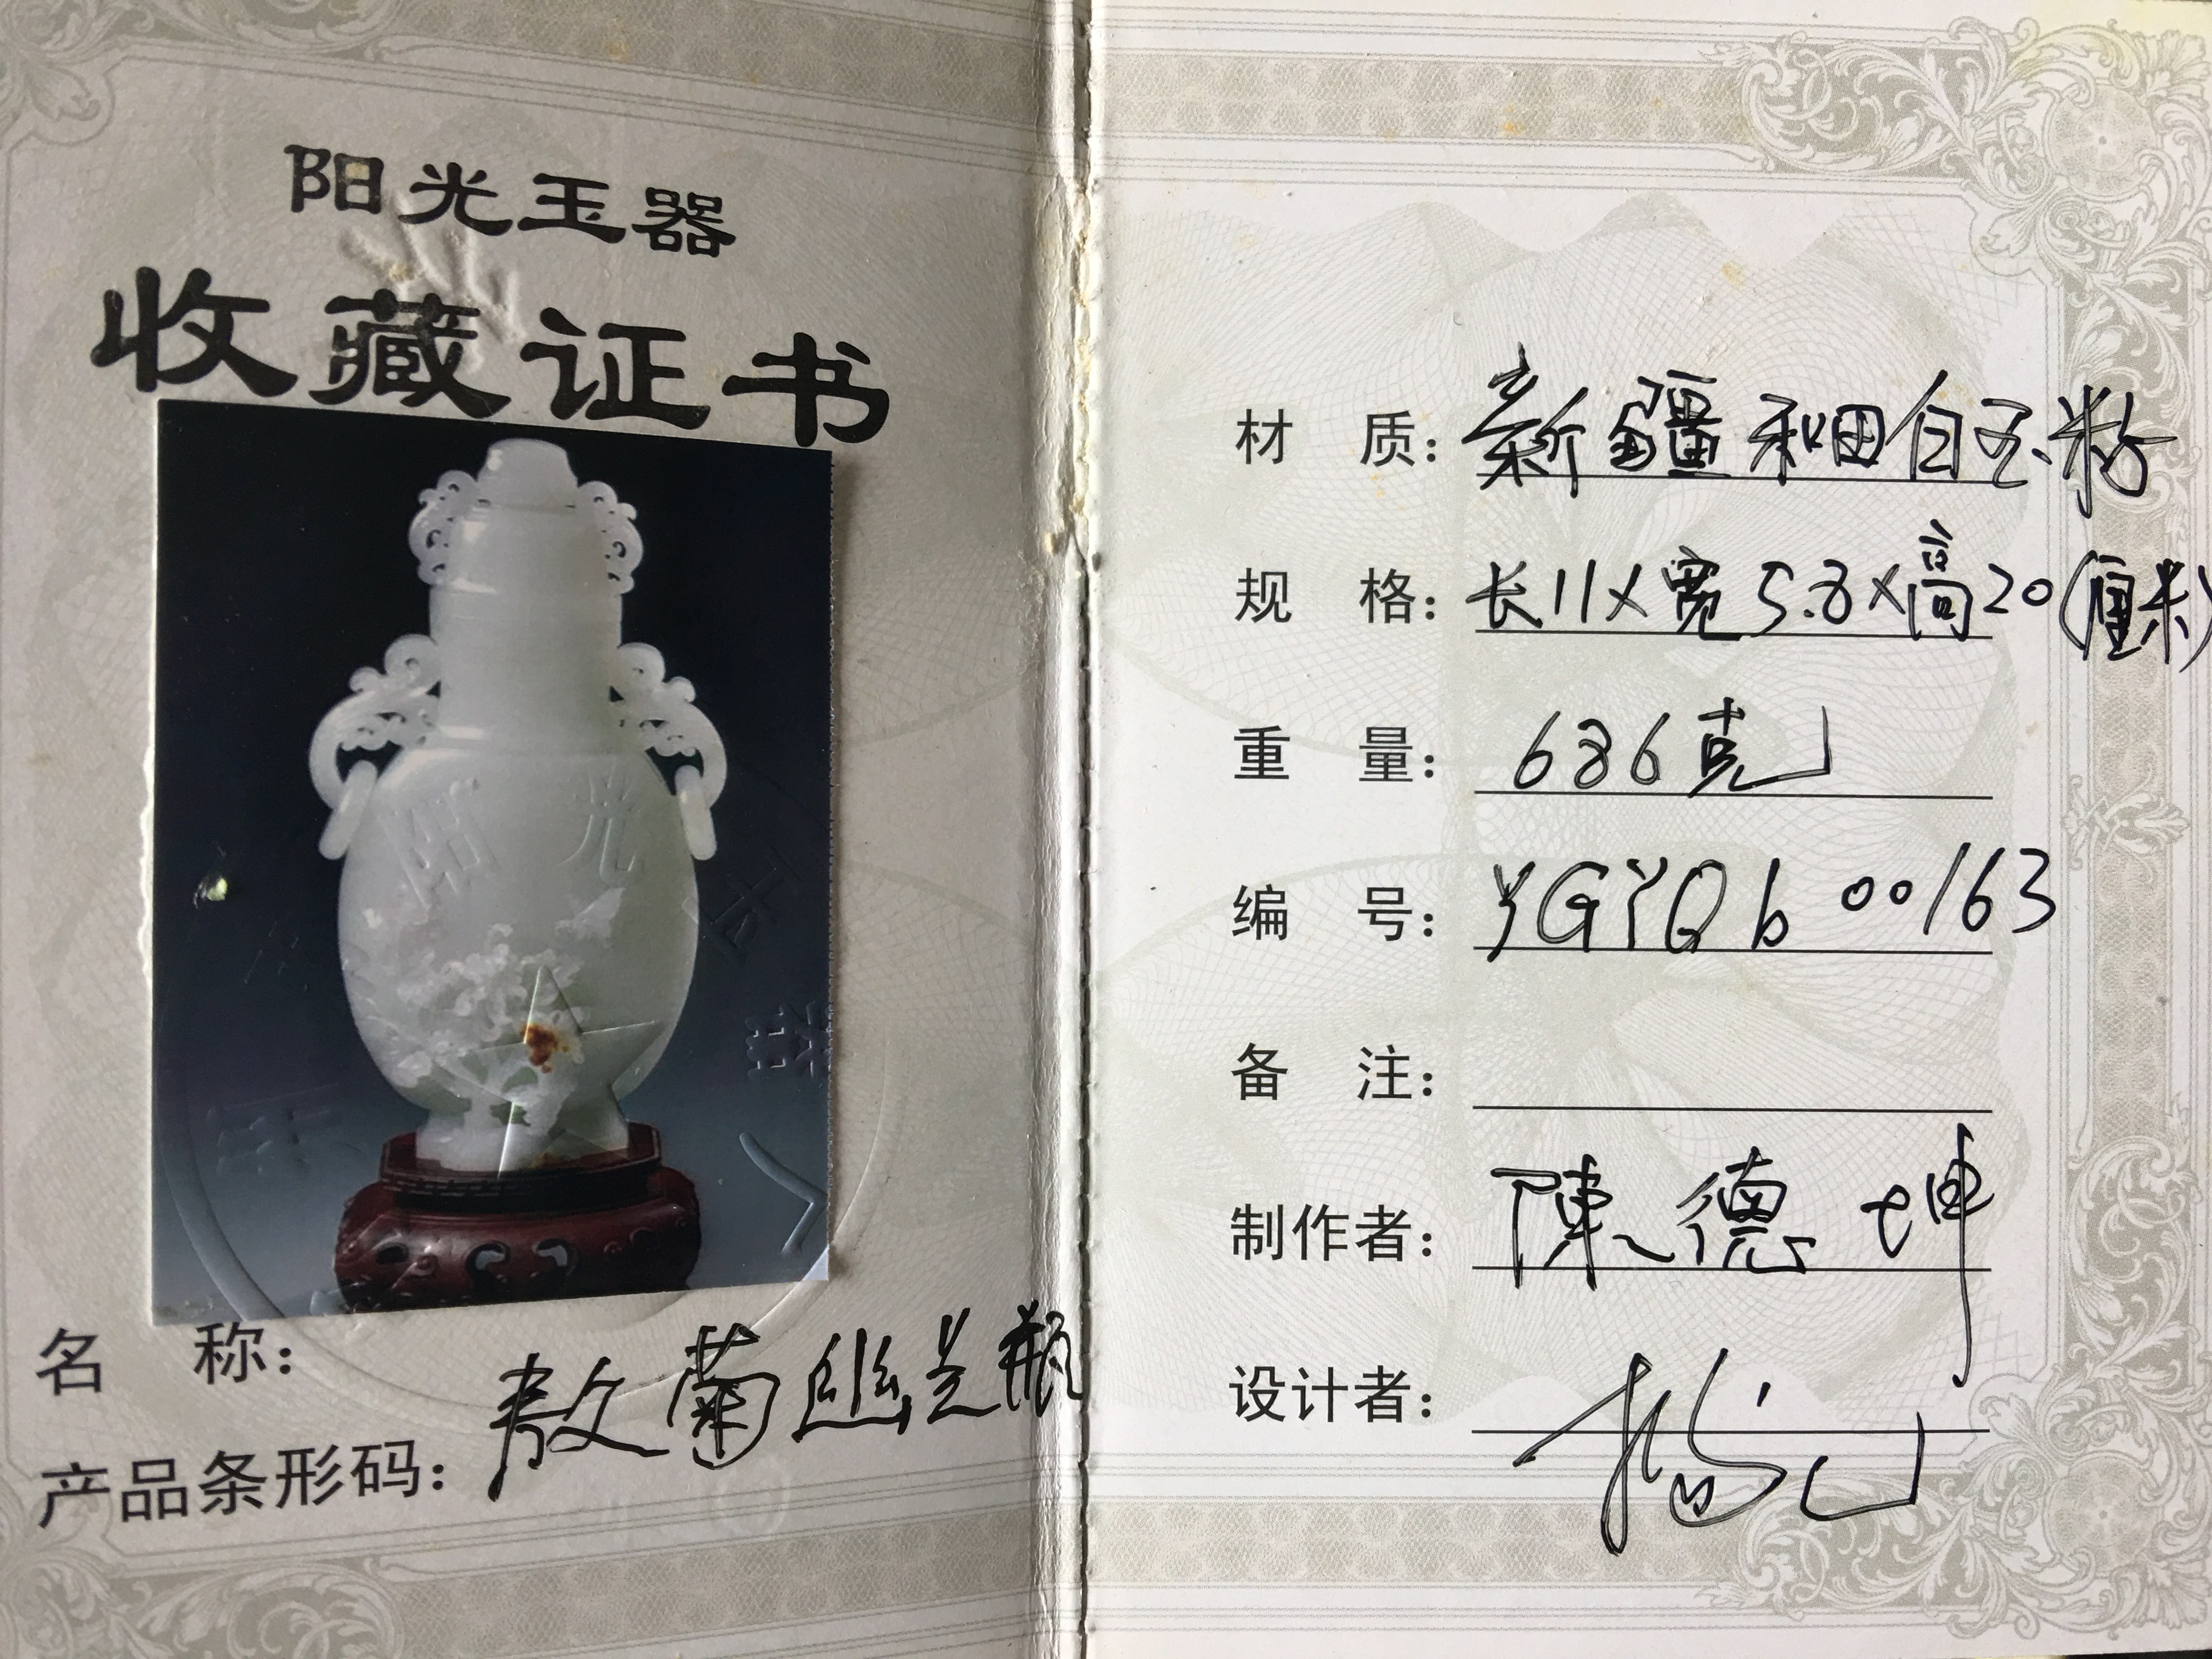 阳光玉器
收藏证书
阳光玉
名称：敖菊幽兰瓶
产品条形码：
材质：新疆和田白玉籽
规格：长11×宽5.8×高20(厘米)
重量：686克
编号：YGYQb00163
备注：
制作者：陳德坤
设计者：